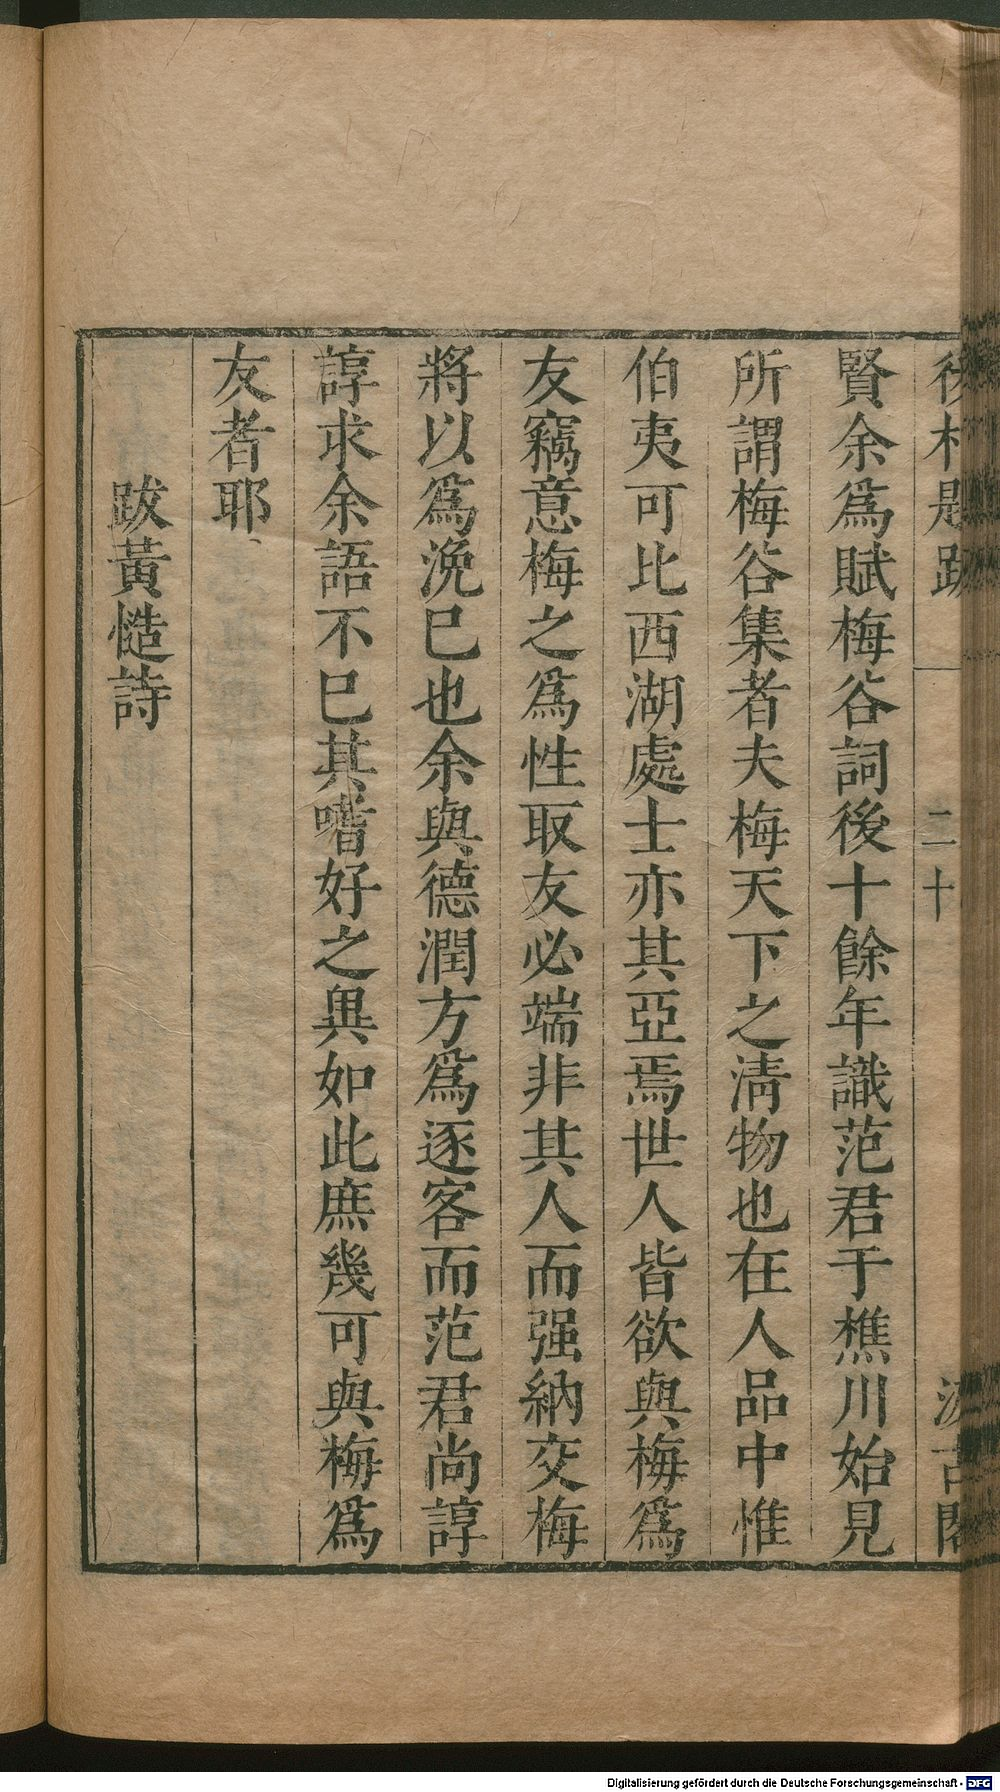 後村題跋 二十 汲古閣
賢余爲賦梅谷詞後十餘年識范君于樵川始見
所謂梅谷集者夫梅天下之淸物也在人品中惟
伯夷可比西湖處士亦其亞焉世人皆欲與梅爲
友竊意梅之爲性取友必端非其人而强納交梅
將以爲浼已也余與德潤方爲逐客而范君尚諄
諄求余語不已其嗜好之異如此庶幾可與梅爲
友者耶
跋黃慥詩
Digitalisierung gefördert durch die Deutsche Forschungsgemeinschaft - DFG